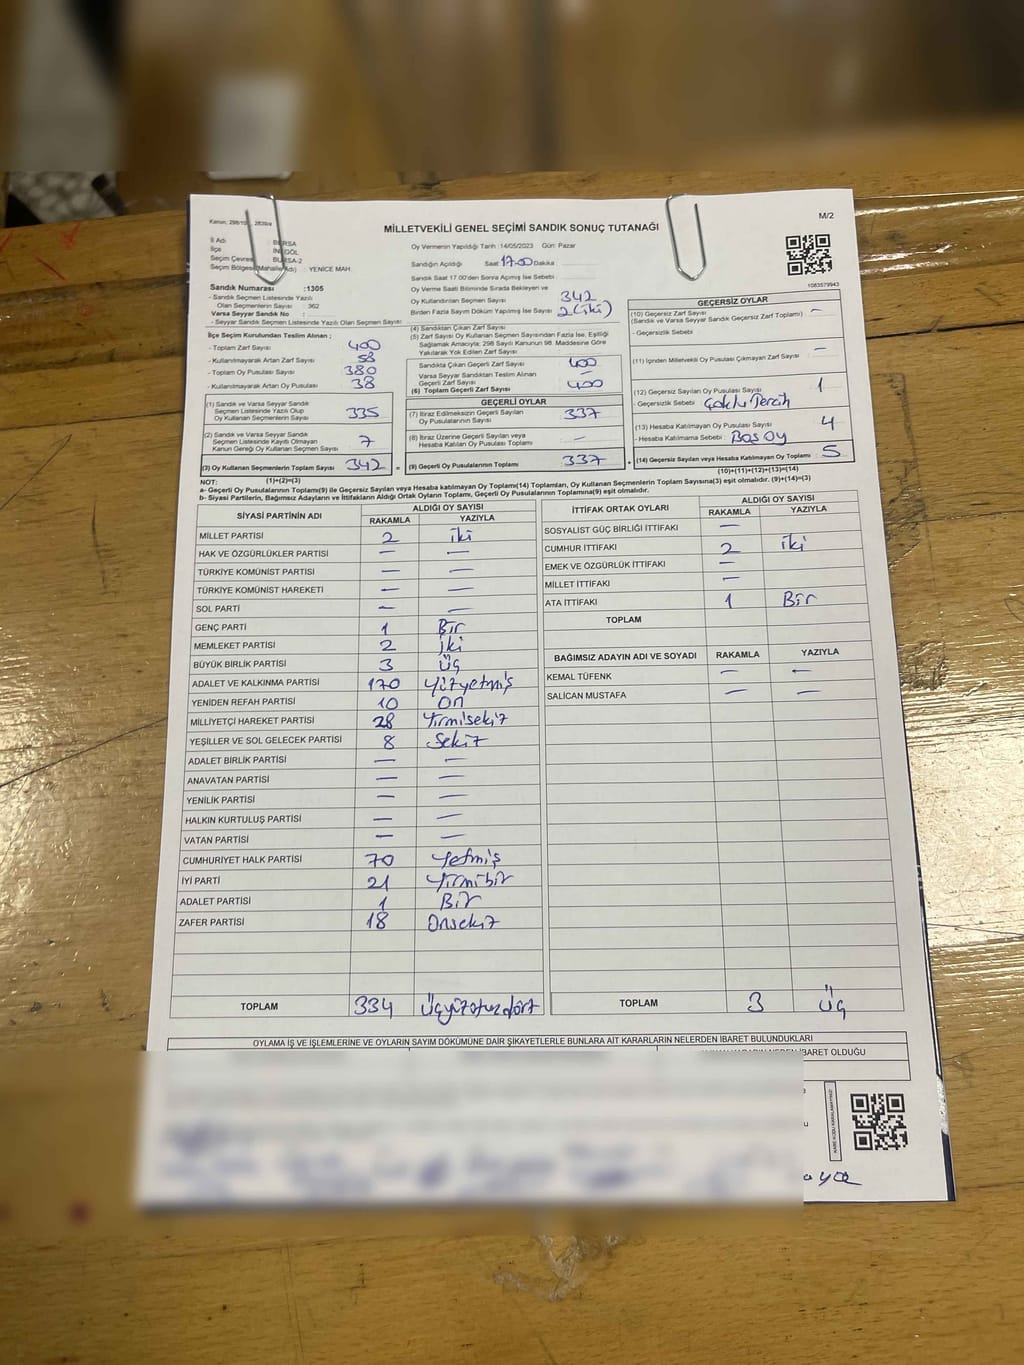 M/2
MİLLETVEKİLİ GENEL SEÇİMİ SANDIK SONUÇ TUTANAĞI
İl Adı : BURSA
İlçe : İNEGÖL
Seçim Çevresi : BURSA-2
Seçim Bölgesi (Mahalle Adı) : YENİCE MAH.
Sandık Numarası :1305
- Sandık Seçmen Listesinde Yazılı
Olan Seçmenlerin Sayısı : 362
Varsa Seyyar Sandık No :
- Seyyar Sandık Seçmen Listesinde Yazılı Olan Seçmen Sayısı :
Oy Vermenin Yapıldığı Tarih :14/05/2023 Gün: Pazar
Sandığın Açıldığı Saat 17.00 Dakika :
Sandık Saat 17.00'den Sonra Açılmış İse Sebebi :
Oy Verme Saati Bitiminde Sırada Bekleyen ve
Oy Kullandırılan Seçmen Sayısı : 342
Birden Fazla Sayım Döküm Yapılmış İse Sayısı : 2 (iki)
1083579943
İlçe Seçim Kurulundan Teslim Alınan ;
- Toplam Zarf Sayısı : 400
- Kullanılmayarak Artan Zarf Sayısı : 58
- Toplam Oy Pusulası Sayısı : 380
- Kullanılmayarak Artan Oy Pusulası : 38
(1) Sandık ve Varsa Seyyar Sandık
Seçmen Listesinde Yazılı Olup
Oy Kullanan Seçmenlerin Sayısı : 335
(2) Sandık ve Varsa Seyyar Sandık
Seçmen Listesinde Kayıtlı Olmayan
Kanun Gereği Oy Kullanan Seçmen Sayısı : 7
(3) Oy Kullanan Seçmenlerin Toplam Sayısı : 342
(1)+(2)=(3)
(4) Sandıktan Çıkan Zarf Sayısı
(5) Zarf Sayısı Oy Kullanan Seçmen Sayısından Fazla İse, Eşitliği
Sağlamak Amacıyla; 298 Sayılı Kanunun 98. Maddesine Göre
Yakılarak Yok Edilen Zarf Sayısı :
Sandıkta Çıkan Geçerli Zarf Sayısı : 400
Varsa Seyyar Sandıktan Teslim Alınan
Geçerli Zarf Sayısı : —
(6) Toplam Geçerli Zarf Sayısı : 400
GEÇERLİ OYLAR
(7) İtiraz Edilmeksizin Geçerli Sayılan
Oy Pusulalarının Sayısı : 337
(8) İtiraz Üzerine Geçerli Sayılan veya
Hesaba Katılan Oy Pusulası Toplamı : —
(9) Geçerli Oy Pusulalarının Toplamı : 337
GEÇERSİZ OYLAR
(10) Geçersiz Zarf Sayısı : —
(Sandık ve Varsa Seyyar Sandık Geçersiz Zarf Toplamı)
- Geçersizlik Sebebi :
(11) İçinden Milletvekili Oy Pusulası Çıkmayan Zarf Sayısı : —
(12) Geçersiz Sayılan Oy Pusulası Sayısı : 1
- Geçersizlik Sebebi : Çoklu Tercih
(13) Hesaba Katılmayan Oy Pusulası Sayısı : 4
- Hesaba Katılmama Sebebi : Boş Oy
(14) Geçersiz Sayılan veya Hesaba Katılmayan Oy Toplamı : 5
(10)+(11)+(12)+(13)=(14)
NOT:
a- Geçerli Oy Pusulaları Toplamı(9) ile Geçersiz Sayılan veya Hesaba Katılmayan Oy Toplamı(14) Toplamları, Oy Kullanan Seçmenlerin Toplam Sayısına(3) eşit olmalıdır. (9)+(14)=(3)
b- Siyasi Partilerin, Bağımsız Adayların ve İttifakların Aldığı Ortak Oyların Toplamı, Geçerli Oy Pusulalarının Toplamına(9) eşit olmalıdır.
SİYASİ PARTİNİN ADI ALDIĞI OY SAYISI
RAKAMLA YAZIYLA
MİLLET PARTİSİ 2 iki
HAK VE ÖZGÜRLÜKLER PARTİSİ — —
TÜRKİYE KOMÜNİST PARTİSİ — —
TÜRKİYE KOMÜNİST HAREKETİ — —
SOL PARTİ — —
GENÇ PARTİ 1 Bir
MEMLEKET PARTİSİ 2 iki
BÜYÜK BİRLİK PARTİSİ 3 üç
ADALET VE KALKINMA PARTİSİ 170 Yüzyetmiş
YENİDEN REFAH PARTİSİ 10 on
MİLLİYETÇİ HAREKET PARTİSİ 28 Yirmisekiz
YEŞİLLER VE SOL GELECEK PARTİSİ 8 Sekiz
ADALET BİRLİK PARTİSİ — —
ANAVATAN PARTİSİ — —
YENİLİK PARTİSİ — —
HALKIN KURTULUŞ PARTİSİ — —
VATAN PARTİSİ — —
CUMHURİYET HALK PARTİSİ 70 Yetmiş
İYİ PARTİ 21 Yirmibir
ADALET PARTİSİ 1 Bir
ZAFER PARTİSİ 18 Onsekiz
TOPLAM 334 Üçyüzotuzdört
İTTİFAK ORTAK OYLARI ALDIĞI OY SAYISI
RAKAMLA YAZIYLA
SOSYALİST GÜÇ BİRLİĞİ İTTİFAKI —
CUMHUR İTTİFAKI 2 iki
EMEK VE ÖZGÜRLÜK İTTİFAKI —
MİLLET İTTİFAKI —
ATA İTTİFAKI 1 Bir
TOPLAM
BAĞIMSIZ ADAYIN ADI VE SOYADI RAKAMLA YAZIYLA
KEMAL TÜFENK — —
SALİCAN MUSTAFA — —
TOPLAM 3 üç
OYLAMA İŞ VE İŞLEMLERİNE VE OYLARIN SAYIM DÖKÜMÜNE DAİR ŞİKAYETLERLE BUNLARA AİT KARARLARIN NELERDEN İBARET BULUNDUKLARI
İBARET OLDUĞU